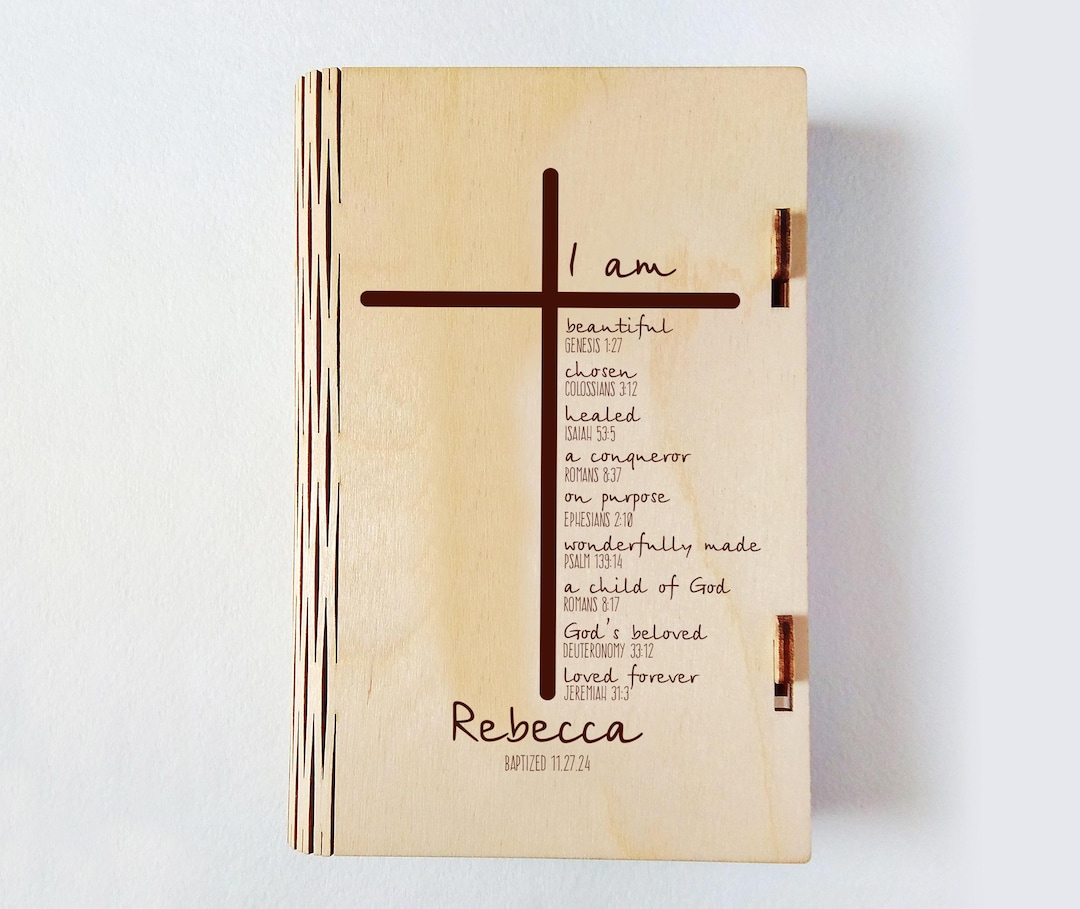 I am
beautiful
GENESIS 1:27
chosen
COLOSSIANS 3:12
healed
ISAIAH 53:5
a conqueror
ROMANS 8:37
on purpose
EPHESIANS 2:10
wonderfully made
PSALM 139:14
a child of God
ROMANS 8:17
God's beloved
DEUTERONOMY 33:12
loved forever
JEREMIAH 31:3
Rebecca
BAPTIZED 11.27.24